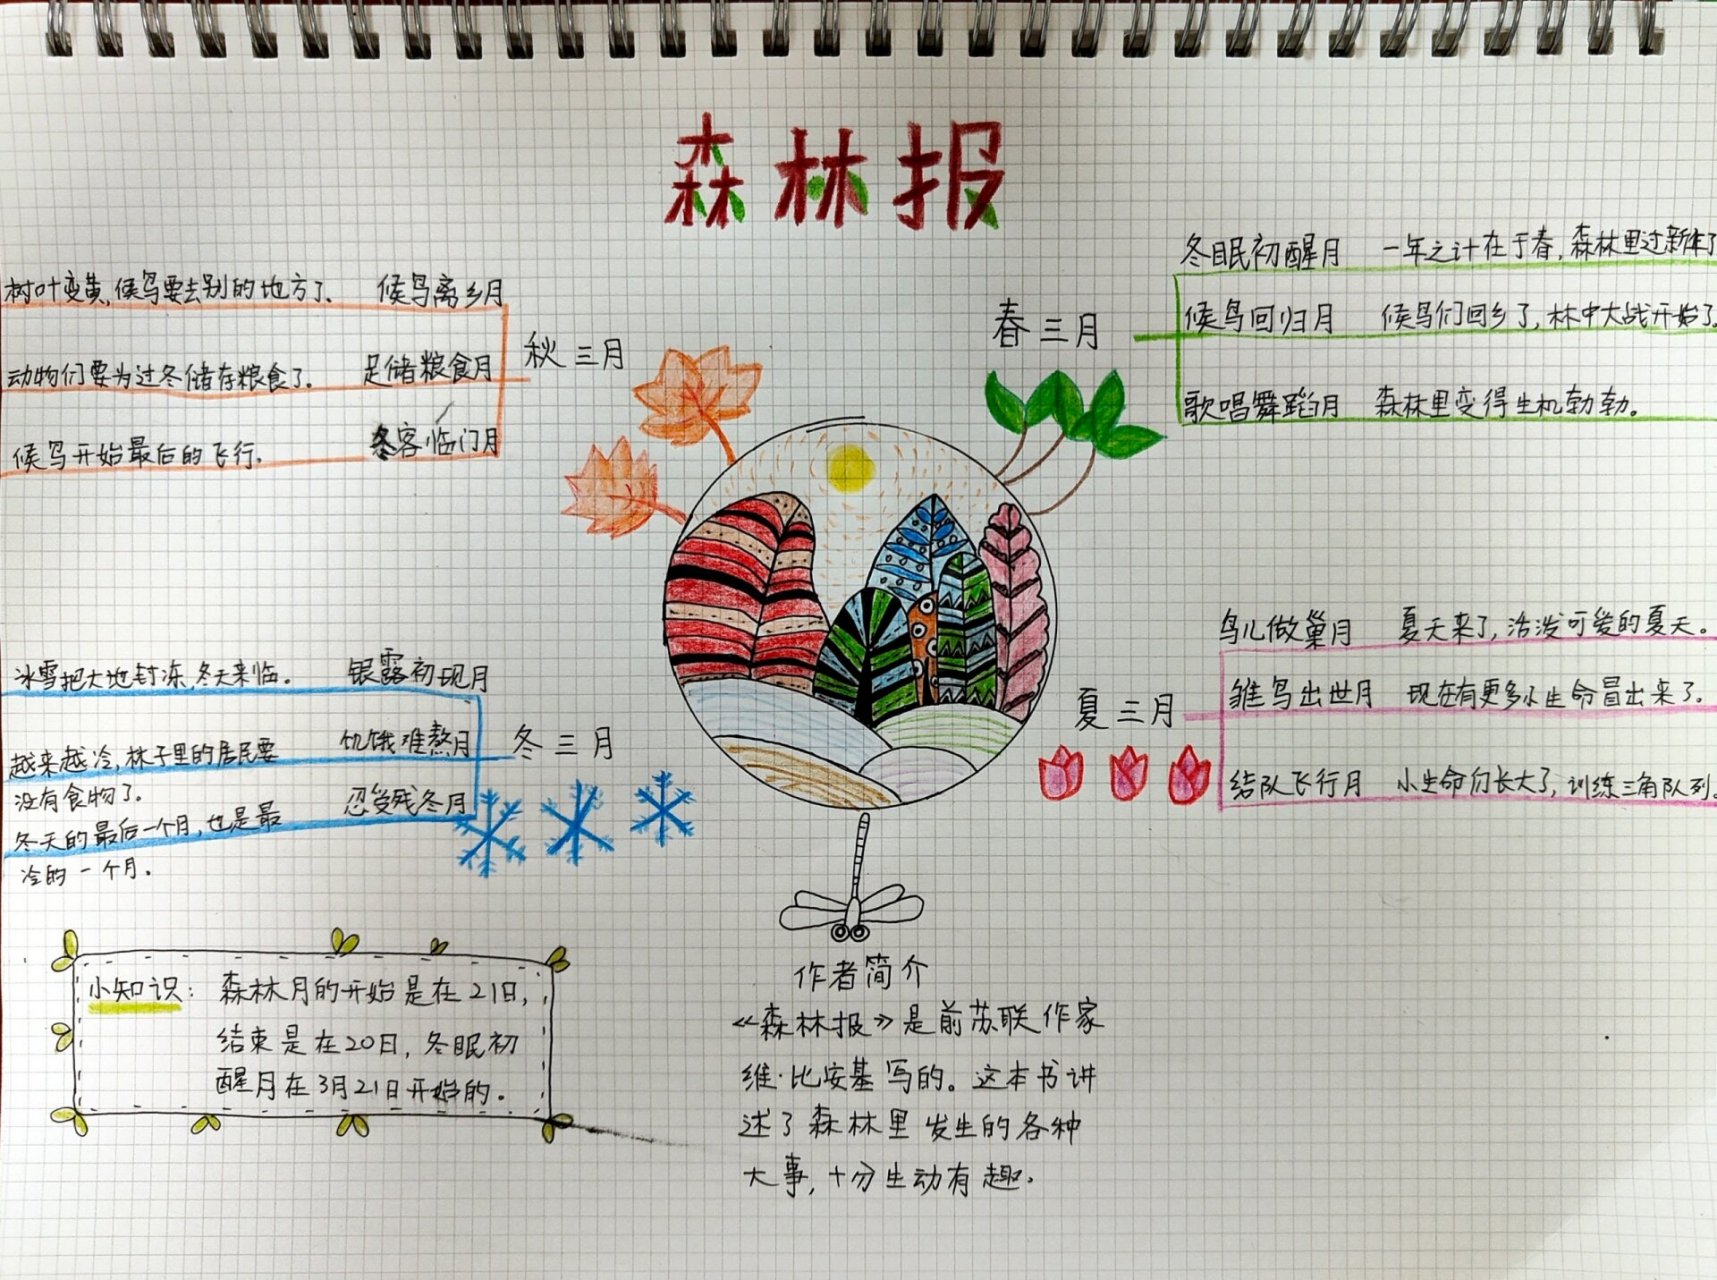 森林报
春三月
冬眠初醒月 一年之计在于春,森林里过新年了
候鸟回归月 候鸟们回乡了,林中大战开始了
歌唱舞蹈月 森林里变得生机勃勃。
夏三月
鸟儿做巢月 夏天来了,活泼可爱的夏天。
雏鸟出世月 现在有更多小生命冒出来了.
结队飞行月 小生命们长大了,训练三角队列.
秋三月
候鸟离乡月 树叶变黄,候鸟要去别的地方了.
足储粮食月 动物们要为过冬储存粮食了.
冬客临门月 候鸟开始最后的飞行.
冬三月
银露初现月 冰雪把大地封冻,冬天来临.
饥饿难熬月 越来越冷,林子里的居民要
没有食物了.
忍受残冬月 冬天的最后一个月,也是最
冷的一个月.
小知识: 森林月的开始是在21日,
结束是在20日,冬眠初
醒月在3月21日开始的.
作者简介
《森林报》是前苏联作家
维·比安基写的。这本书讲
述了森林里发生的各种
大事,十分生动有趣.